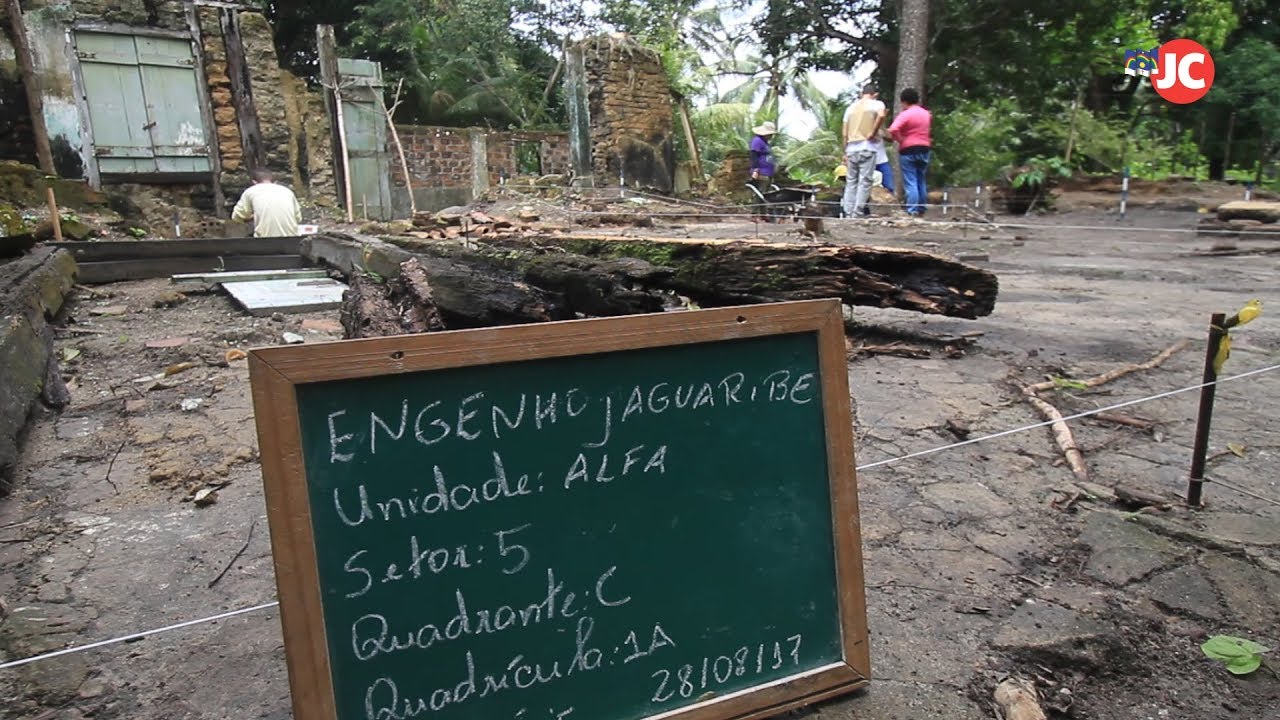 JC
ENGENHO JAGUARIBE
Unidade: ALFA
Setor: 5
Quadrante: C
Quadrícula: 1A
28/08/17